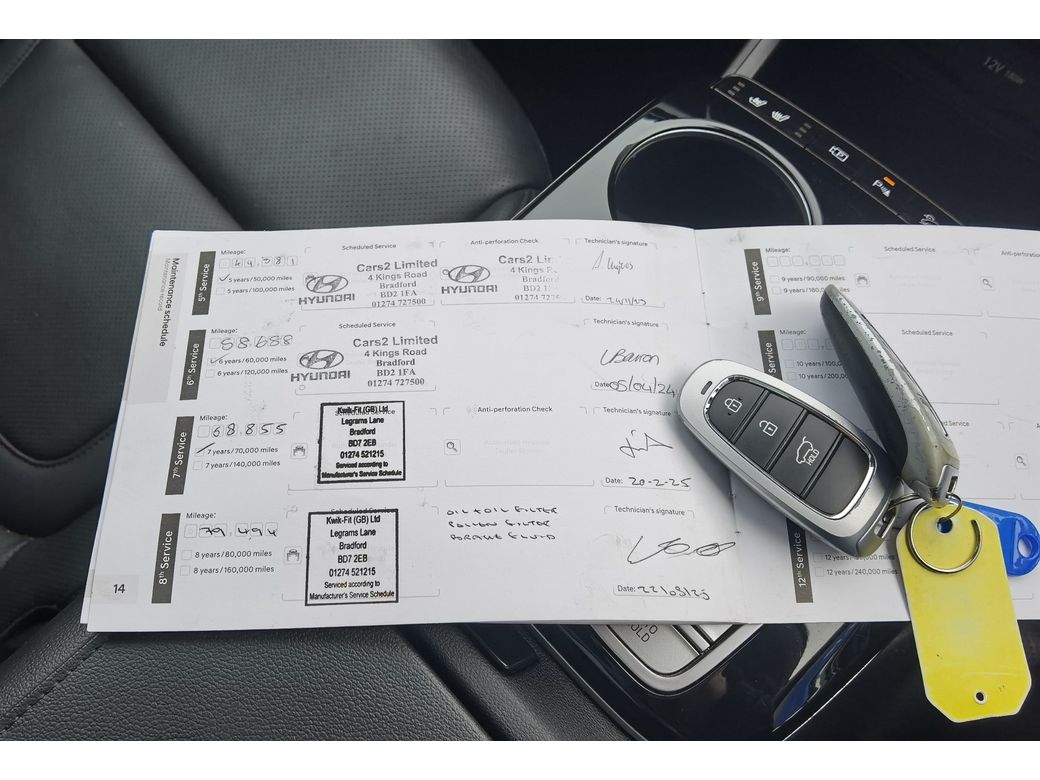 12V 180W
Maintenance schedule
Maintenance record
5th Service
Mileage:
44,381
5 years/50,000 miles
5 years/100,000 miles
Scheduled Service
HYUNDAI
Cars2 Limited
4 Kings Road
Bradford
BD2 1FA
01274 727500
Anti-perforation Check
HYUNDAI
Cars2 Lir
4 Kings R
Bradford
BD2 1
01274 727
Technician's signature
Date:
6th Service
Mileage:
58,688
6 years/60,000 miles
6 years/120,000 miles
Scheduled Service
HYUNDAI
Cars2 Limited
4 Kings Road
Bradford
BD2 1FA
01274 727500
Technician's signature
Date: 05/04/24
7th Service
Mileage:
68,855
7 years/70,000 miles
7 years/140,000 miles
Scheduled Service
Kwik-Fit (GB) Ltd
Legrams Lane
Bradford
BD7 2EB
01274 521215
Serviced according to
Manufacturer's Service Schedule
Anti-perforation Check
Technician's signature
Date: 20-2-25
8th Service
Mileage:
79,494
8 years/80,000 miles
8 years/160,000 miles
Scheduled Service
Kwik-Fit (GB) Ltd
Legrams Lane
Bradford
BD7 2EB
01274 521215
Serviced according to
Manufacturer's Service Schedule
OIL & OIL FILTER
POLLEN FILTER
BRAKE FLUID
Technician's signature
Date:
14
9th Service
Mileage:
9 years/90,000 miles
9 years/180,
Scheduled Service
Anti-per
Mileage:
10 years/100,
10 years/200,
Scheduled Service
Scheduled Service
12th Service
12 years/240,000 miles
HOLD
HOLD